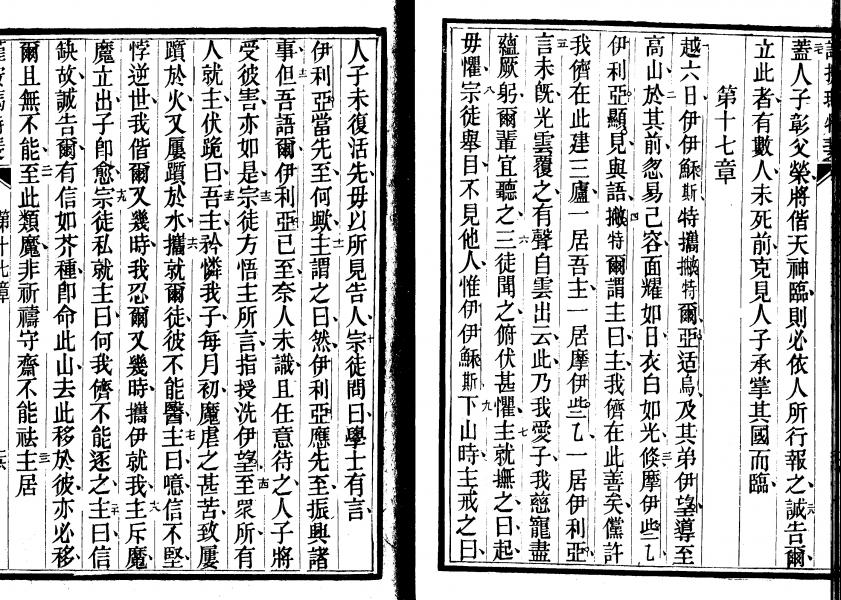 蓋人子彰父榮將偕天神臨則必依人所行報之誠告爾
立此者有數人未死前克見人子承掌其國而臨
第十七章
越六日伊伊穌斯特攜撇特爾亞适烏及其弟伊望導至
高山於其前忽易己容面耀如日衣白如光倏摩伊些乙
伊利亞顯見與語撇特爾謂主曰主我儕在此善矣儻許
我儕在此建三廬一居吾主一居摩伊些乙一居伊利亞
言未旣光雲覆之有聲自雲出云此乃我愛子我慈寵盡
蘊厥躬爾輩宜聽之三徒聞之俯伏甚懼主就撫之曰起
毋懼宗徒舉目不見他人惟伊伊穌斯下山時主戒之曰
人子未復活先毋以所見告人宗徒問曰學士有言
伊利亞當先至何歟主謂之曰然伊利亞應先至振興諸
事但吾語爾伊利亞已至奈人未識且任意待之人子將
受彼害亦如是宗徒方悟主所言指授洗伊望至眾所有
人就主伏跪曰吾主矜憐我子每月初魔虐之甚苦致屢
躓於火又屢躓於水攜就爾徒彼不能醫主曰噫信不堅
悖逆世我偕爾又幾時我忍爾又幾時攜伊就我主斥魔
魔立出子卽愈宗徒私就主曰何我儕不能逐之主曰信
缺故誠告爾有信如芥種卽命此山去此移於彼亦必移
爾且無不能至此類魔非祈禱守齋不能祛主居
第十七章